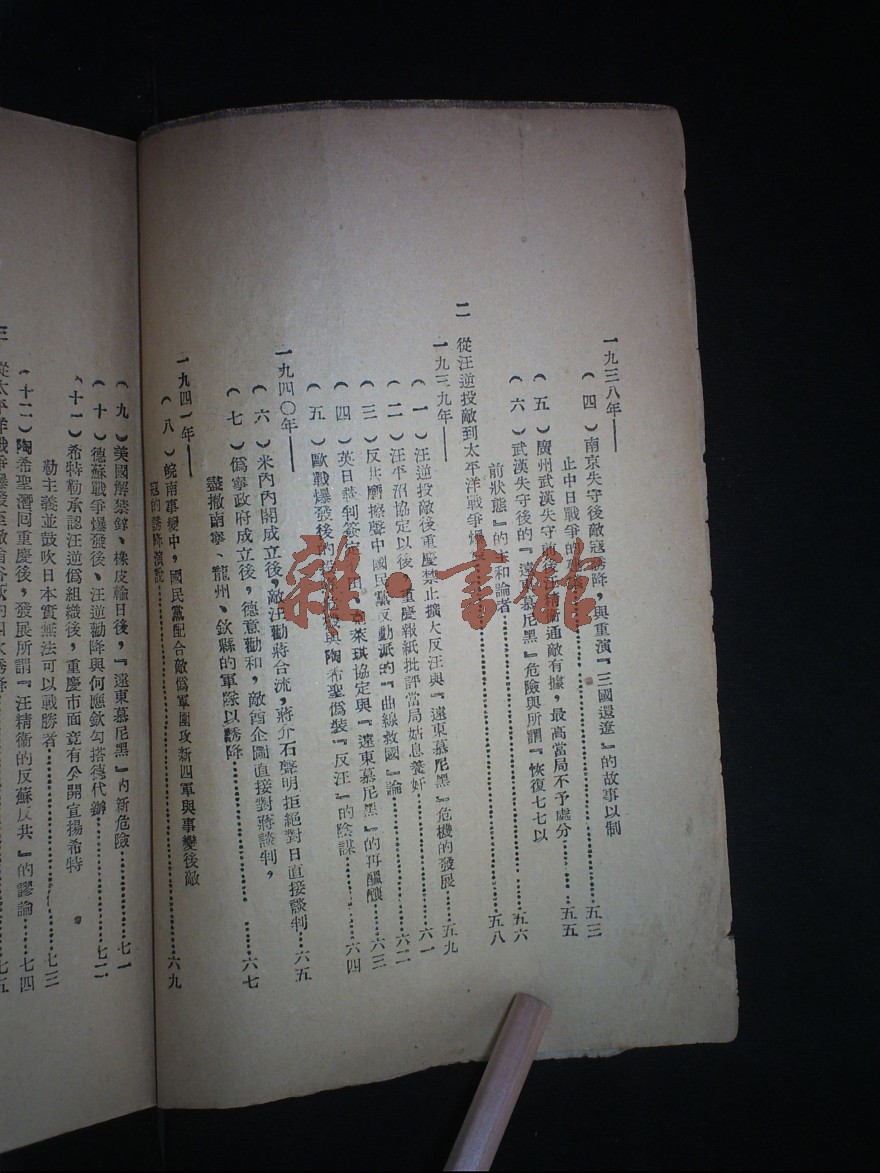 一九三八年——
(四)南京失守後敵寇誘降,與重演『三國還遼』的故事以制
止中日戰爭的……五三
(五)廣州武漢失守前後汪精衛通敵有據,最高當局不予處分……五五
(六)武漢失守後的『遠東慕尼黑』危險與所謂『恢復七七以
前狀態』的求和論者……五六
二 從汪逆投敵到太平洋戰爭爆……五八
一九三九年——
(一)汪逆投敵後重慶禁止擴大反汪與『遠東慕尼黑』危機的發展……五九
(二)汪平沼協定以後,重慶報紙批評當局姑息養奸……六一
(三)反共磨擦聲中國民黨反動派的『曲線救國』論……六二
(四)英日談判簽定 田,克萊琪協定與『遠東慕尼黑』的再醞釀……六三
(五)歐戰爆發後的 與陶希聖偽裝『反汪』的陰謀……六四
一九四〇年——
(六)米內內閣成立後,敵汪勸蔣合流,蔣介石聲明拒絕對日直接談判……六五
(七)僞寧政府成立後,德意勸和,敵酋企圖直接對蔣談判,
盡撤南寧、龍州、欽縣的軍隊以誘降……六七
一九四一年——
(八)皖南事變中,國民黨配合敵僞軍圍攻新四軍與事變後敵
寇的誘降演說……六九
(九)美國解禁鎔、橡皮輸日後,『遠東慕尼黑』內新危險……七一
(十)德蘇戰爭爆發後、汪逆勸降與何應欽勾搭德代辦……七二
(十一)希特勒承認汪逆僞組織後,重慶市面竟有公開宣揚希特
勒主義並鼓吹日本實無法可以戰勝者……七三
(十二)陶希聖潛回重慶後,發展所謂『汪精衛的反蘇反共』的謬論……七四
三 從太平洋戰爭爆發至敵酋谷荻的四次誘降……七五
雜·書館